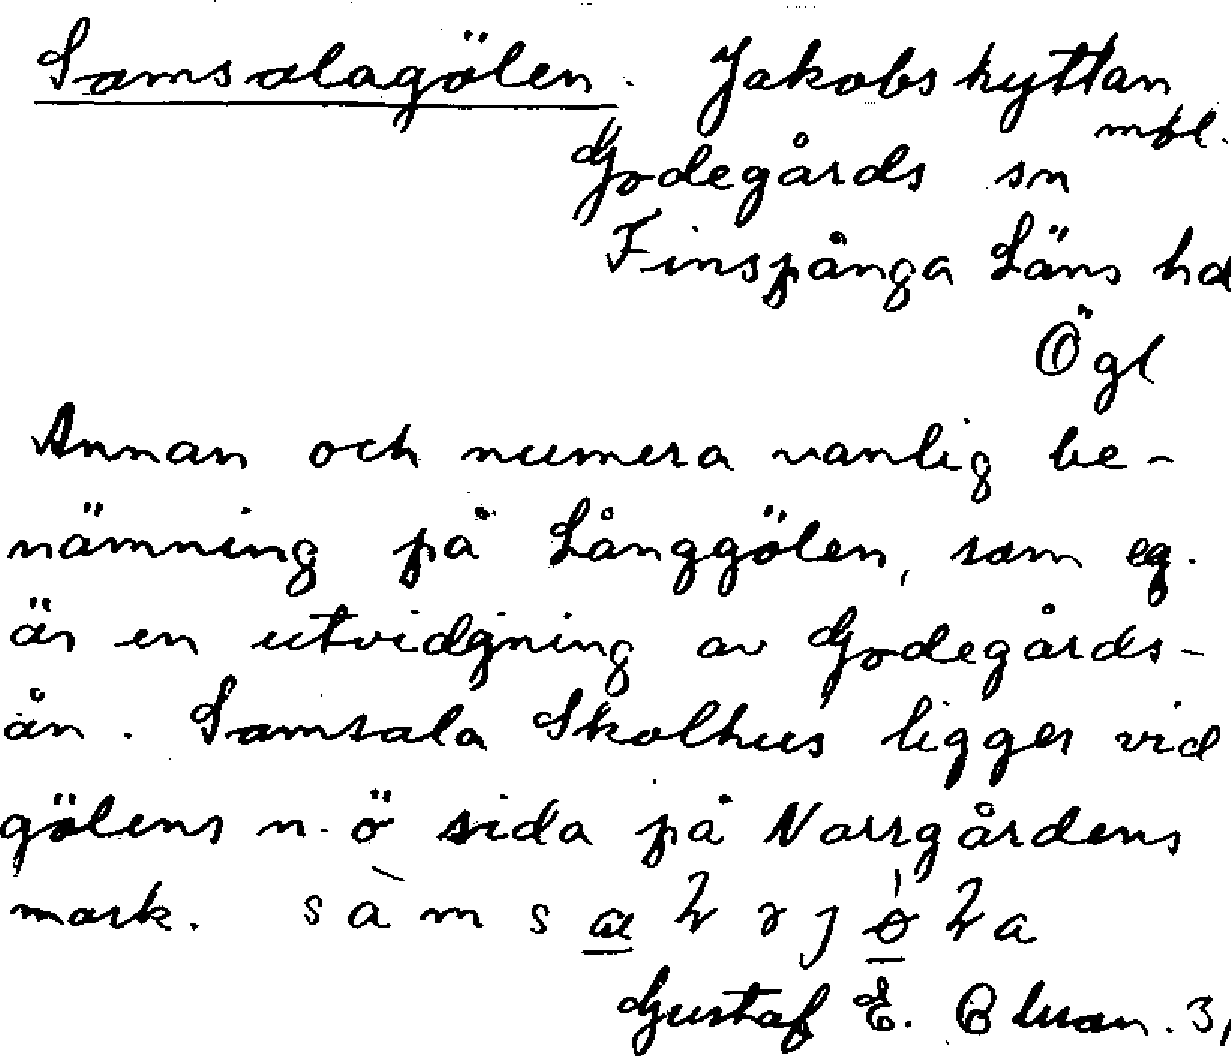 Samsalagölen. Jakobshyttan
mbl.
Godegårds sn
Finspånga Läns hd
Ögl
Annan och numera vanlig be-
nämning på Långgölen, som eg.
är en utvidgning av Godegårds-
ån. Samsala Skolhus ligger vid
gölens n. ö sida på Norrgårdens
mark.
Gustaf E.